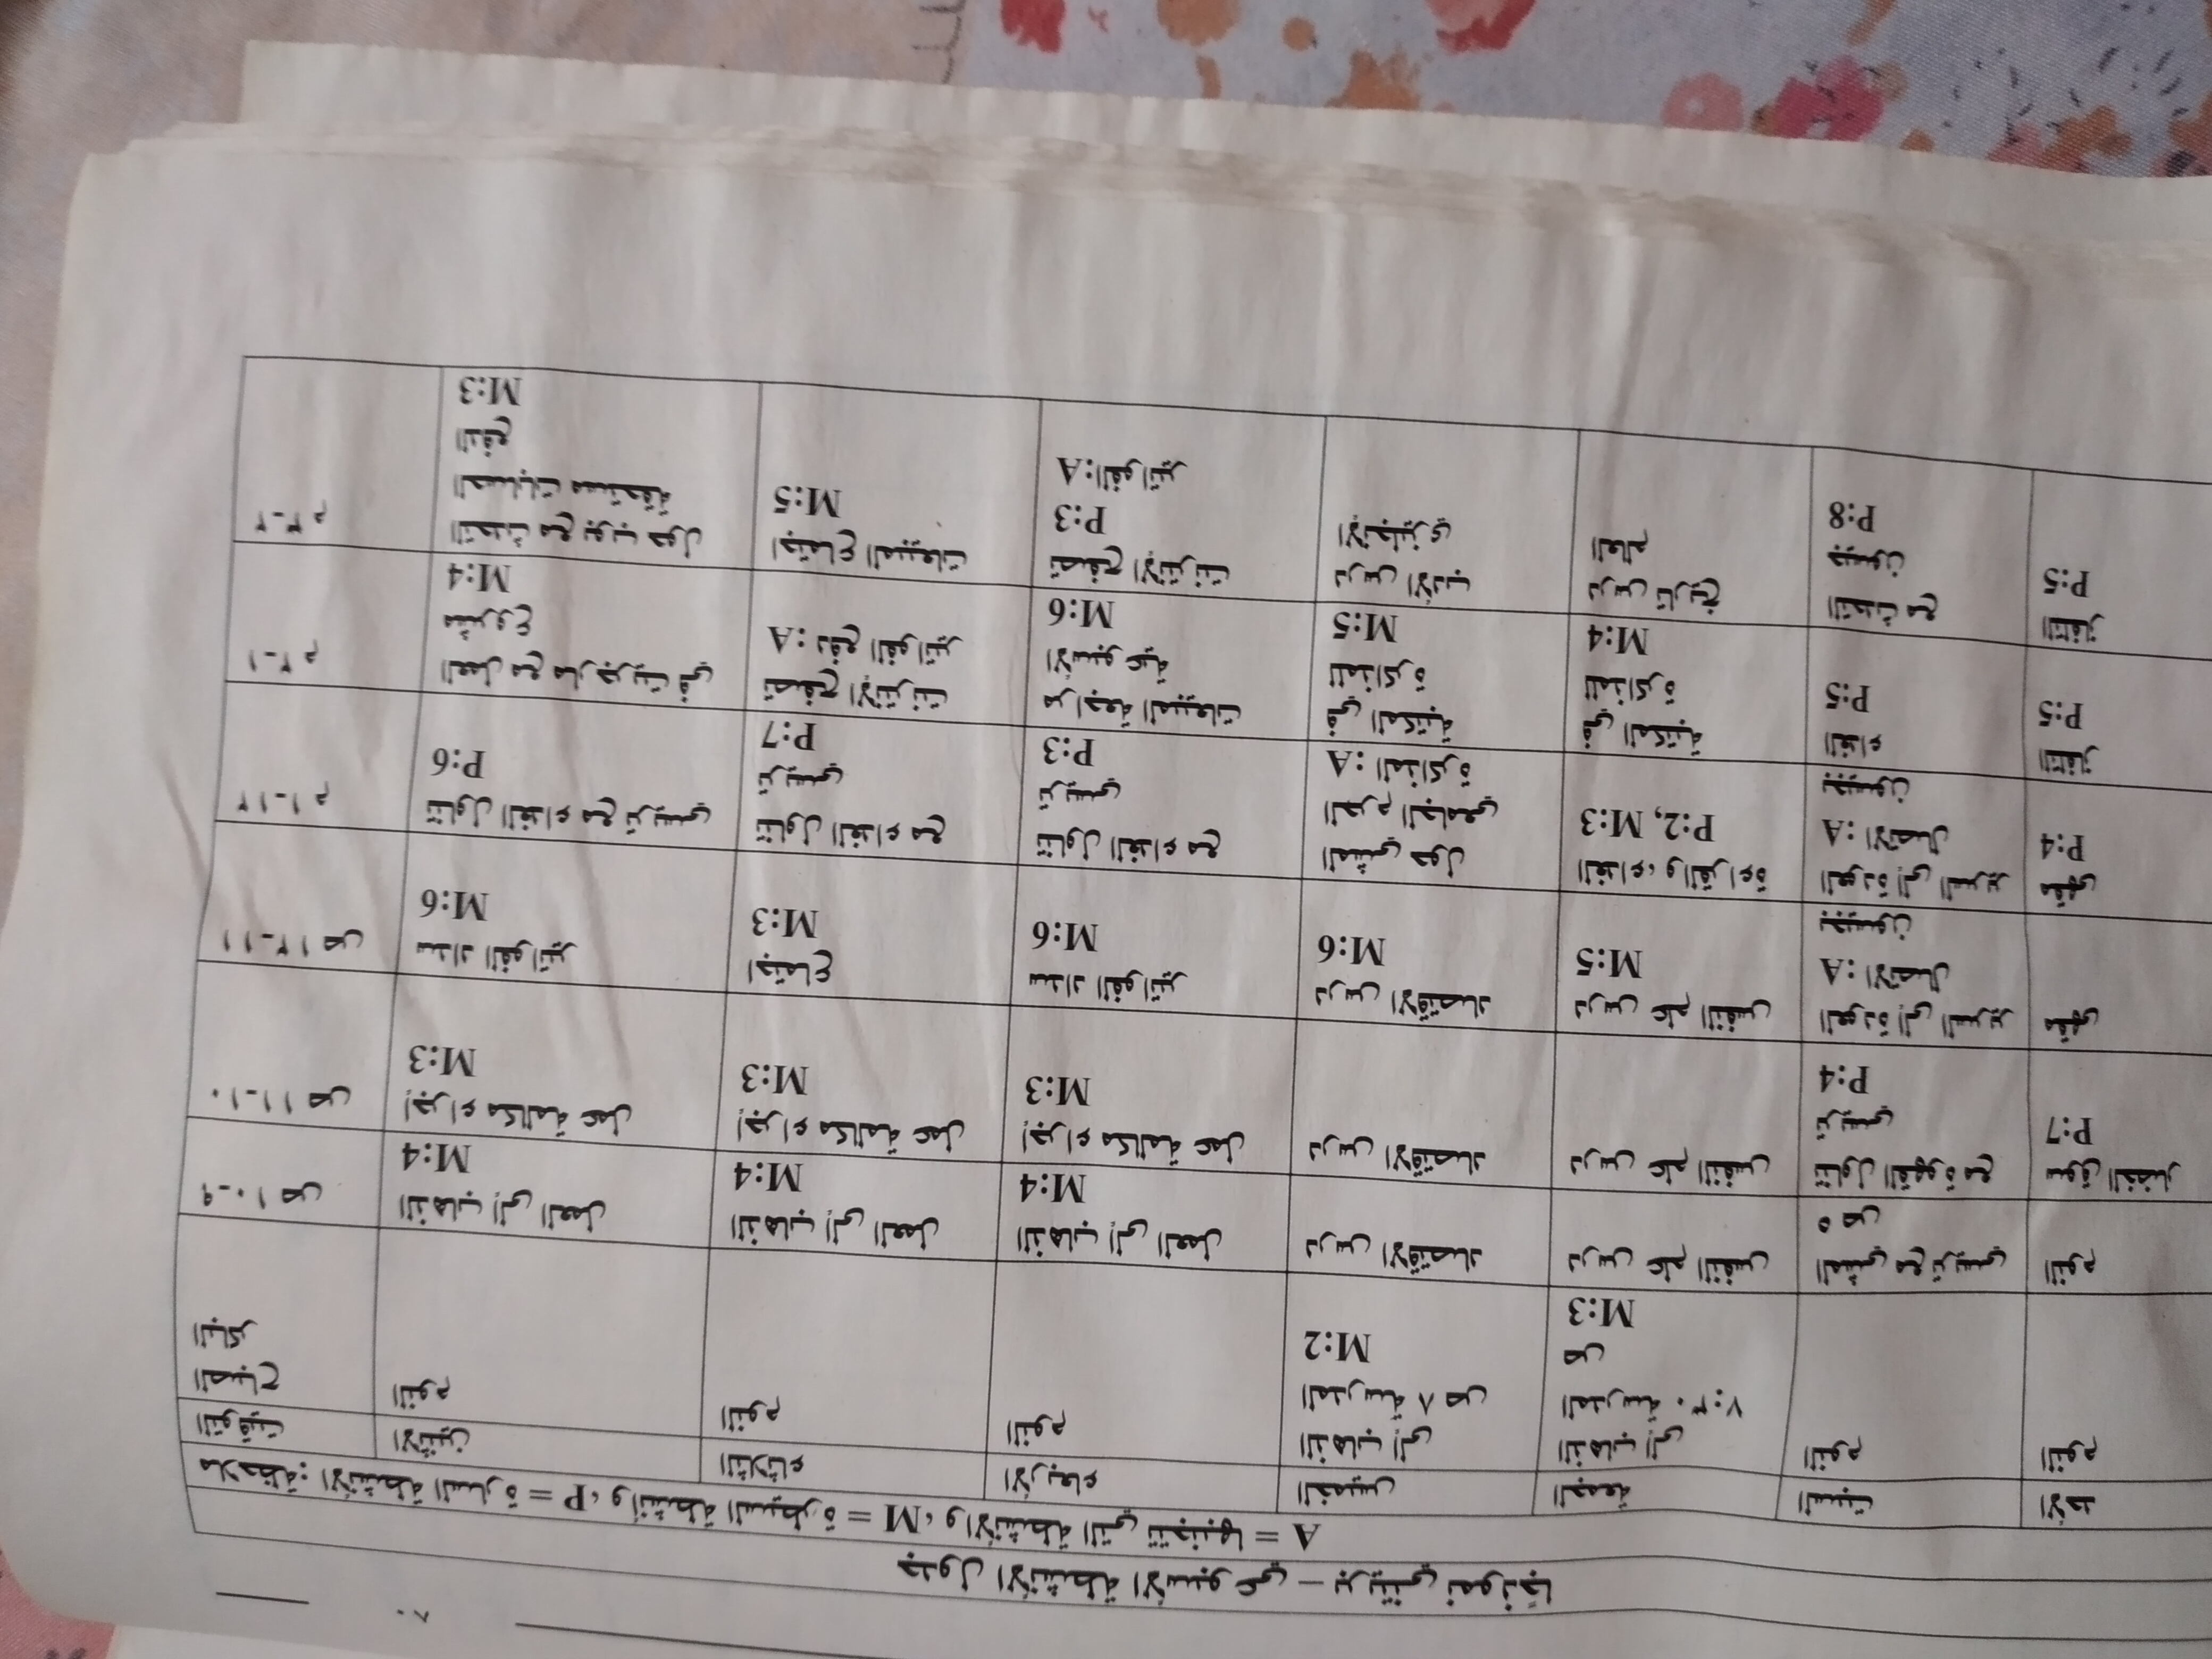 ٨٠
جدول الأنشطة الأسبوعي – بريتني نموذجًا
ملاحظة: الأنشطة السارة = P، وأنشطة السيطرة = M، والأنشطة التي تتجنبها = A
التوقيت الاثنين الثلاثاء الأربعاء الخميس الجمعة السبت الأحد
الصباح
الباكر
النوم
النوم
النوم
الذهاب إلى
المدرسة ٨ ص
M:2
الذهاب إلى
المدرسة ٧:٣٠
ص
M:3
النوم
النوم
٩-١٠ ص
الذهاب إلى العمل
M:4
الذهاب إلى العمل
M:4
الذهاب إلى العمل
M:4
درس الاقتصاد
درس علم النفس
المشي مع تريسي
٥ ص
النوم
١٠-١١ ص
إجراء مكالمة عمل
M:3
إجراء مكالمة عمل
M:3
إجراء مكالمة عمل
M:3
درس الاقتصاد
درس علم النفس
تناول القهوة مع
تريسي
P:4
سوق الخضار
P:7
١١-١٢ ص
سداد الفواتير
M:6
اجتماع
M:3
سداد الفواتير
M:6
درس الاقتصاد
M:6
درس علم النفس
M:5
العودة إلى السرير
A: الاتصال
بجيسون
مقهى
١٢-١ م
تناول الغداء مع تريسي
P:6
تناول الغداء مع
تريسي
P:7
تناول الغداء مع
تريسي
P:3
المشي حول
الحرم الجامعي
A: المذاكرة
الغداء، والقراءة
P:2, M:3
العودة إلى السرير
A: الاتصال
بجيسون
مقهى
P:4
١-٢ م
العمل مع مارجريت في
مشروع
M:4
تصفح الإنترنت
A: دفع الفواتير
مراجعة المبيعات
الأسبوعية
M:6
في المكتبة
للمذاكرة
M:5
في المكتبة
للمذاكرة
M:4
الغداء
P:5
التلفاز
P:5
٢-٣ م
التحدث مع بوب حول
الحسابات مستحقة
الدفع
M:3
اجتماع المبيعات
M:5
تصفح الإنترنت
P:3
A:الفواتير
درس الأدب
الإنجليزي
درس تاريخ
العالم
التحدث مع
جيسون
P:8
التلفاز
P:5